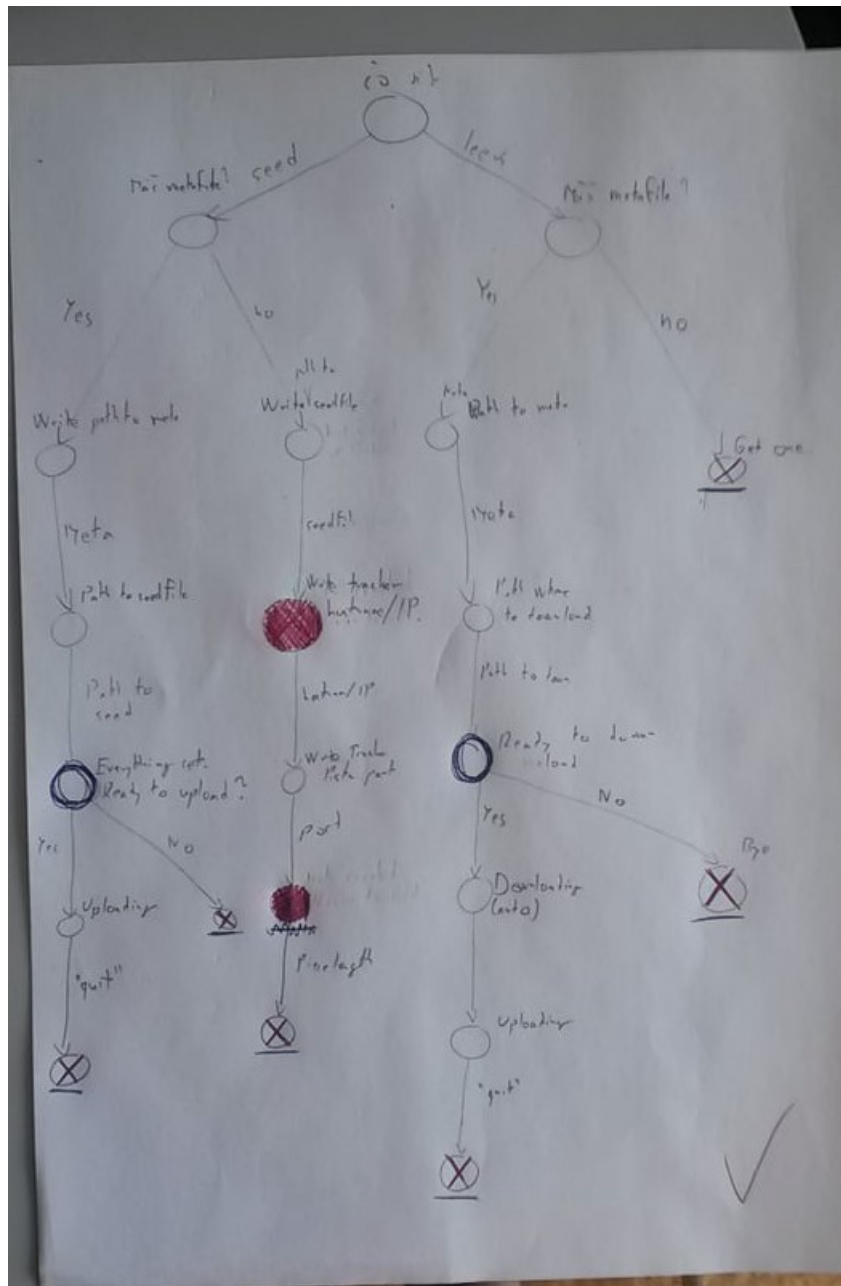 seed
metafile?
metafile?
Yes
no
Yes
no
Write path to meta
path to
Write seedfile
Path to meta
Get one
Meta
seedfil
Meta
Path to seedfile
Write tracker
/IP.
Path where
to download
Path to
seed
/IP
Path to
Everything set.
Ready to upload?
Write
port
Ready to down-
load
Yes
No
port
Yes
No
Bye
Uploading
Downloading
(auto)
"quit"
Piecelength
Uploading
"quit"